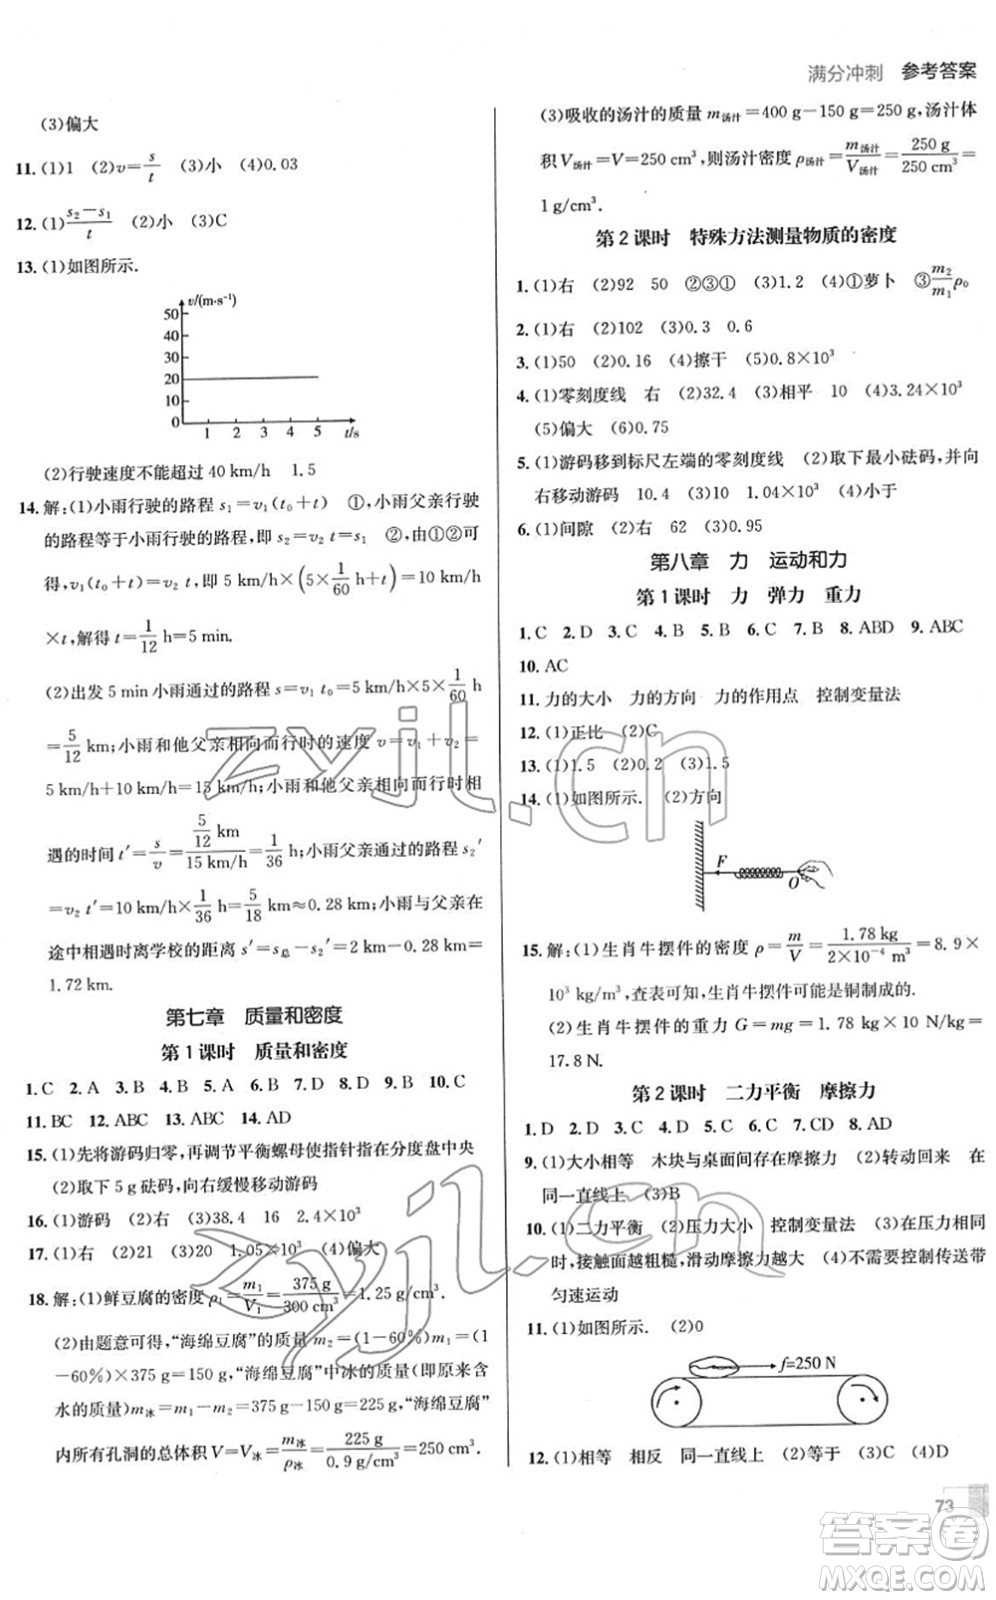 满分冲刺 参考答案
(3)偏大
11.(1)1 (2)v=s/t (3)小 (4)0.03
12.(1)(s₂-s₁)/t (2)小 (3)C
13.(1)如图所示.
v/(m·s⁻¹)
50
40
30
20
10
0
1 2 3 4 5 t/s
(2)行驶速度不能超过 40 km/h 1.5
14.解:(1)小雨行驶的路程 s₁=v₁(t₀+t) ①,小雨父亲行驶
的路程等于小雨行驶的路程,即 s₂=v₂t=s₁ ②,由①②可
得,v₁(t₀+t)=v₂ t,即 5 km/h×(5×1/60 h+t)=10 km/h
×t,解得 t=1/12 h=5 min.
(2)出发 5 min 小雨通过的路程 s=v₁ t₀=5 km/h×5×1/60 h
=5/12 km;小雨和他父亲相向而行时的速度 v=v₁+v₂=
5 km/h+10 km/h=15 km/h;小雨和他父亲相向而行时相
遇的时间 t′=s/v=(5/12 km)/(15 km/h)=1/36 h;小雨父亲通过的路程 s₂′
=v₂ t′=10 km/h×1/36 h=5/18 km≈0.28 km;小雨与父亲在
途中相遇时离学校的距离 s′=s总-s₂′=2 km-0.28 km=
1.72 km.
第七章 质量和密度
第 1 课时 质量和密度
1.C 2.A 3.B 4.B 5.B 6.B 7.D 8.D 9.B 10.C
11.BC 12.ABC 13.ABC 14.AD
15.(1)先将游码归零,再调节平衡螺母使指针指在分度盘中央
(2)取下 5 g 砝码,向右缓慢移动游码
16.(1)游码 (2)右 (3)38.4 16 2.4×10³
17.(1)右 (2)21 (3)20 1.05×10³ (4)偏大
18.解:(1)鲜豆腐的密度 ρ₁=m₁/V₁=375 g/300 cm³=1.25 g/cm³.
(2)由题意可得,“海绵豆腐”的质量 m₂=(1-60%)m₁=(1
-60%)×375 g=150 g;“海绵豆腐”中冰的质量(即原来含
水的质量)m冰=m₁-m₂=375 g-150 g=225 g,“海绵豆腐”
内所有孔洞的总体积 V=V冰=m冰/ρ冰=225 g/0.9 g/cm³=250 cm³.
(3)吸收的汤汁的质量 m汤汁=400 g-150 g=250 g,汤汁体
积 V汤汁=V=250 cm³,则汤汁密度 ρ汤汁=m汤汁/V汤汁=250 g/250 cm³=
1 g/cm³.
第 2 课时 特殊方法测量物质的密度
1.(1)右 (2)92 50 ②③① (3)1.2 (4)①萝卜 ③m₂/m₁ρ₀
2.(1)右 (2)102 (3)0.3 0.6
3.(1)50 (2)0.16 (4)擦干 (5)0.8×10³
4.(1)零刻度线 右 (2)32.4 (3)相平 10 (4)3.24×10³
(5)偏大 (6)0.75
5.(1)游码移到标尺左端的零刻度线 (2)取下最小砝码,并向
右移动游码 10.4 (3)10 1.04×10³ (4)小于
6.(1)间隙 (2)右 62 (3)0.95
第八章 力 运动和力
第 1 课时 力 弹力 重力
1.C 2.D 3.C 4.B 5.B 6.C 7.B 8.ABD 9.ABC
10.AC
11.力的大小 力的方向 力的作用点 控制变量法
12.(1)正比 (2)C
13.(1)1.5 (2)0 (3)1.5
14.(1)如图所示. (2)方向
F
O
15.解:(1)生肖牛摆件的密度 ρ=m/V=1.78 kg/2×10⁻⁴ m³=8.9×
10³ kg/m³,查表可知,生肖牛摆件可能是铜制成的.
(2)生肖牛摆件的重力 G=mg=1.78 kg×10 N/kg=
17.8 N.
第 2 课时 二力平衡 摩擦力
1.D 2.D 3.C 4.B 5.C 6.D 7.CD 8.AD
9.(1)大小相等 木块与桌面间存在摩擦力 (2)转动回来 在
同一直线上 (3)B
10.(1)二力平衡 (2)压力大小 控制变量法 (3)在压力相同
时,接触面越粗糙,滑动摩擦力越大 (4)不需要控制传送带
匀速运动
11.(1)如图所示. (2)0
f=250 N
12.(1)相等 相反 同一直线上 (2)等于 (3)C (4)D
73
zyjl.cn
zyjl.cn
答案卷
MXQE.COM